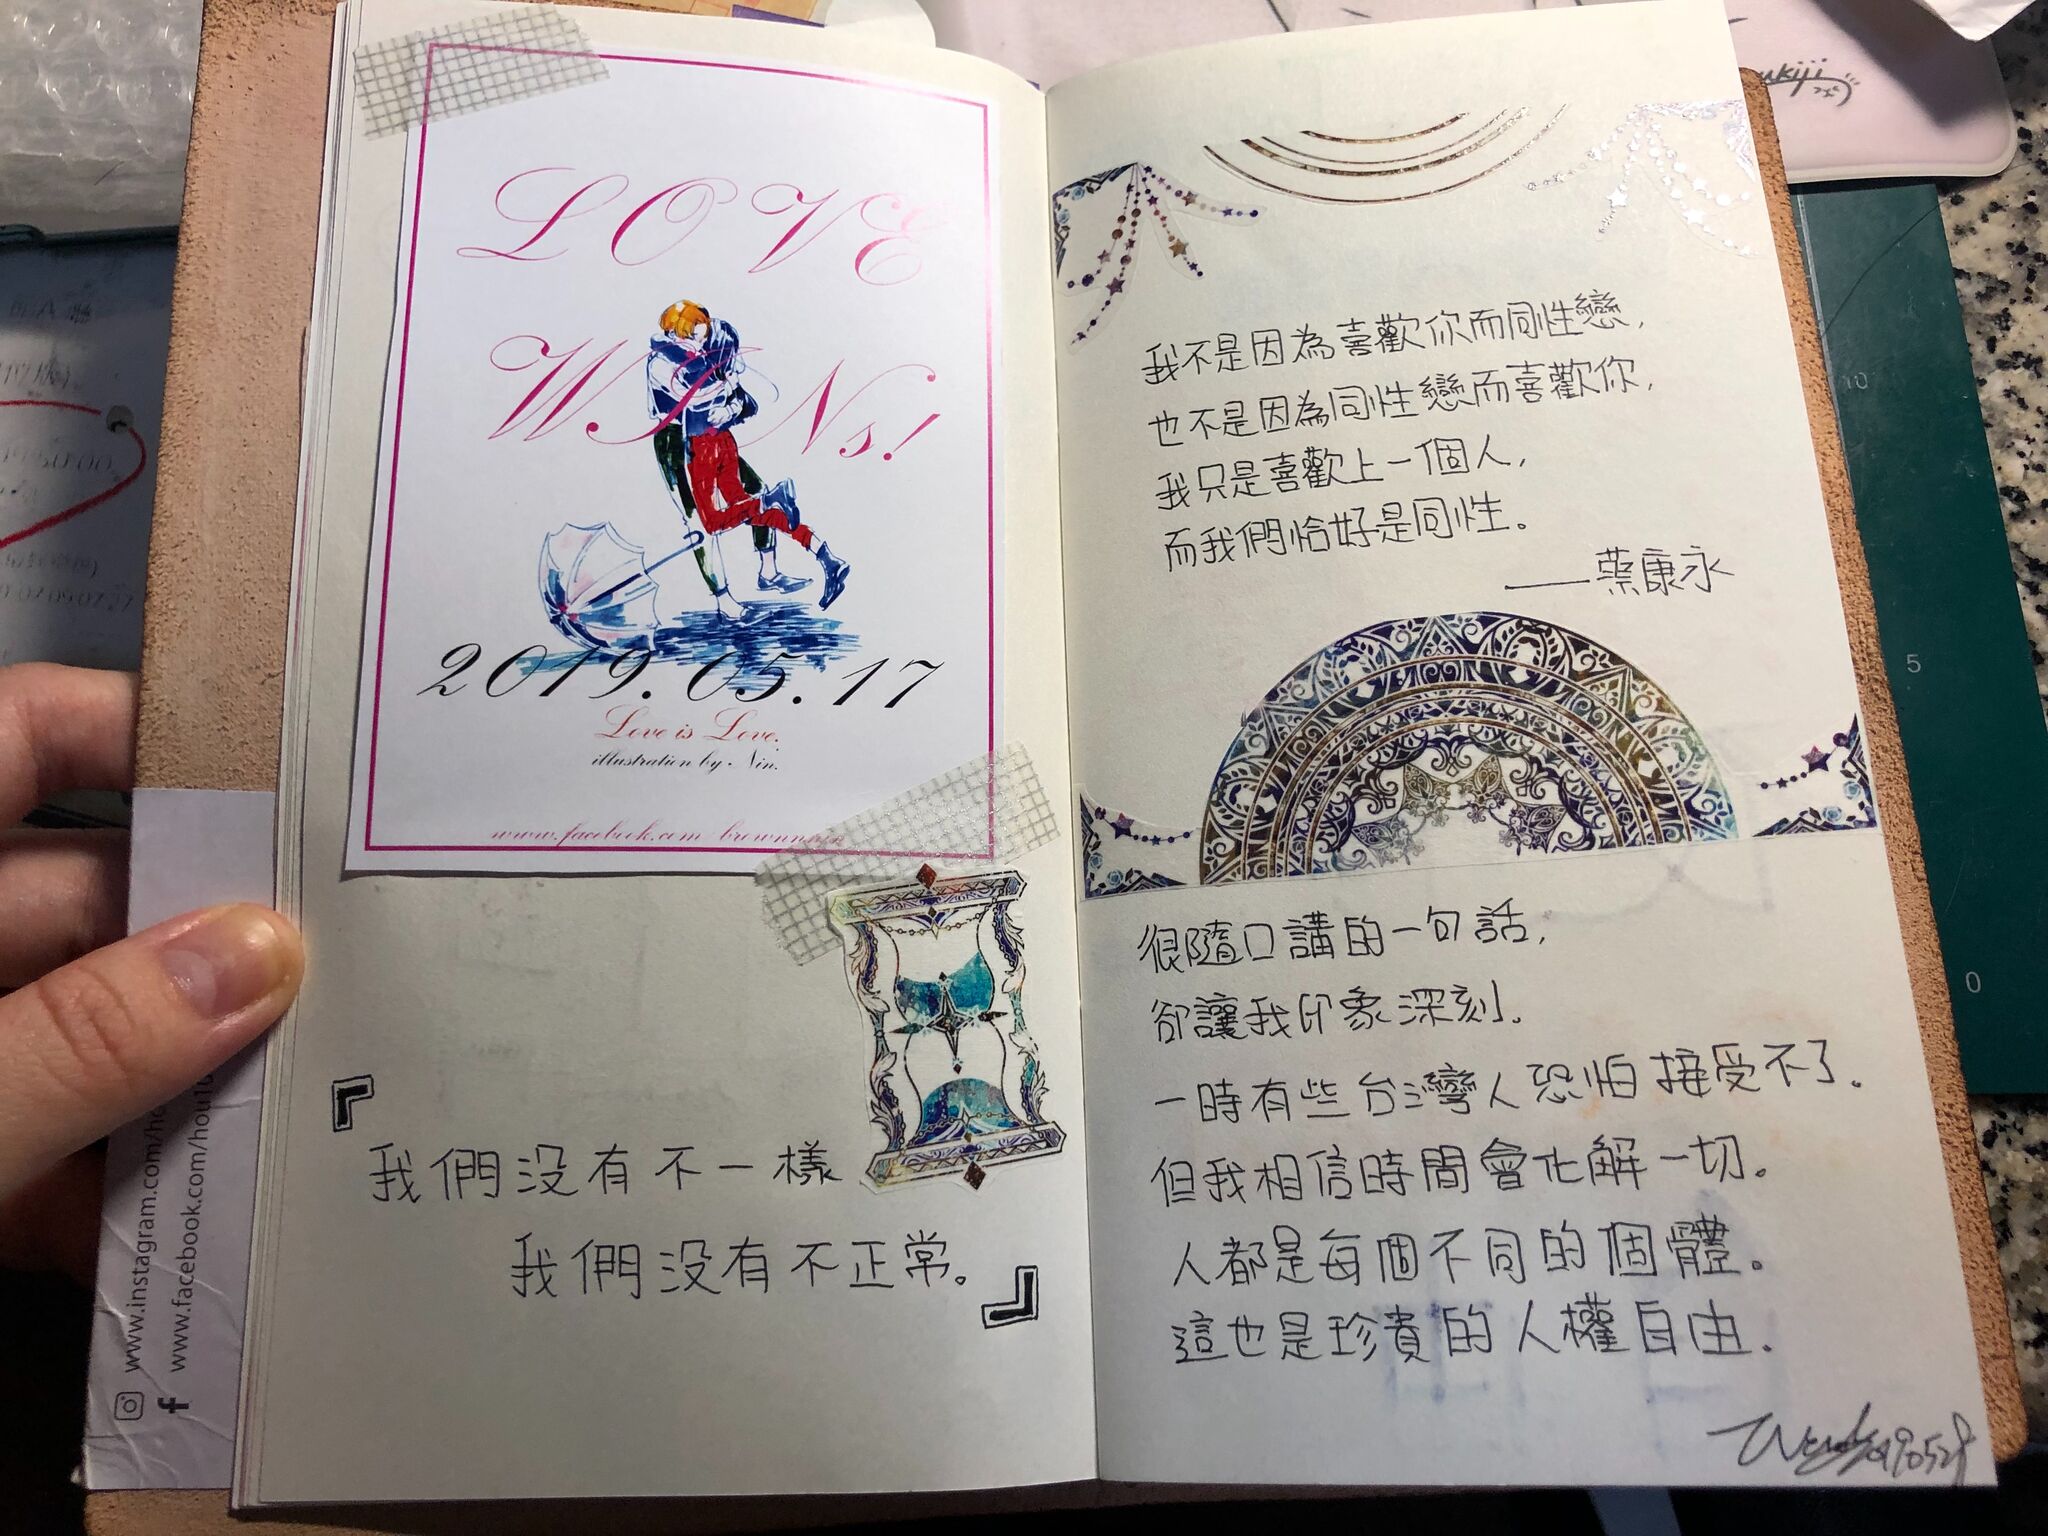 LOVE
WINs!
2019.05.17
Love is Love.
illustration by Nin.
『
我們沒有不一樣
我們沒有不正常。
』
www.instagram.com/
www.facebook.com/
我不是因為喜歡你而同性戀,
也不是因為同性戀而喜歡你,
我只是喜歡上一個人,
而我們恰好是同性。
——蔡康永
很隨口講的一句話,
卻讓我印象深刻.
一時有些台灣人恐怕接受不了.
但我相信時間會化解一切。
人都是每個不同的個體。
這也是珍貴的人權自由.
10
5
0